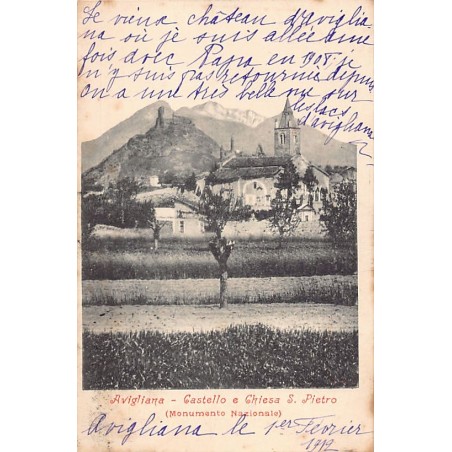 Le vieux château d'aviglia-
na où je suis allée une
fois avec Papa en 1908 je
n'y suis pas retournée depuis
on a une très belle vue sur
les lacs
d'avigliana
Avigliana - Castello e Chiesa S. Pietro
(Monumento Nazionale)
Avigliana le 1er Février
1912